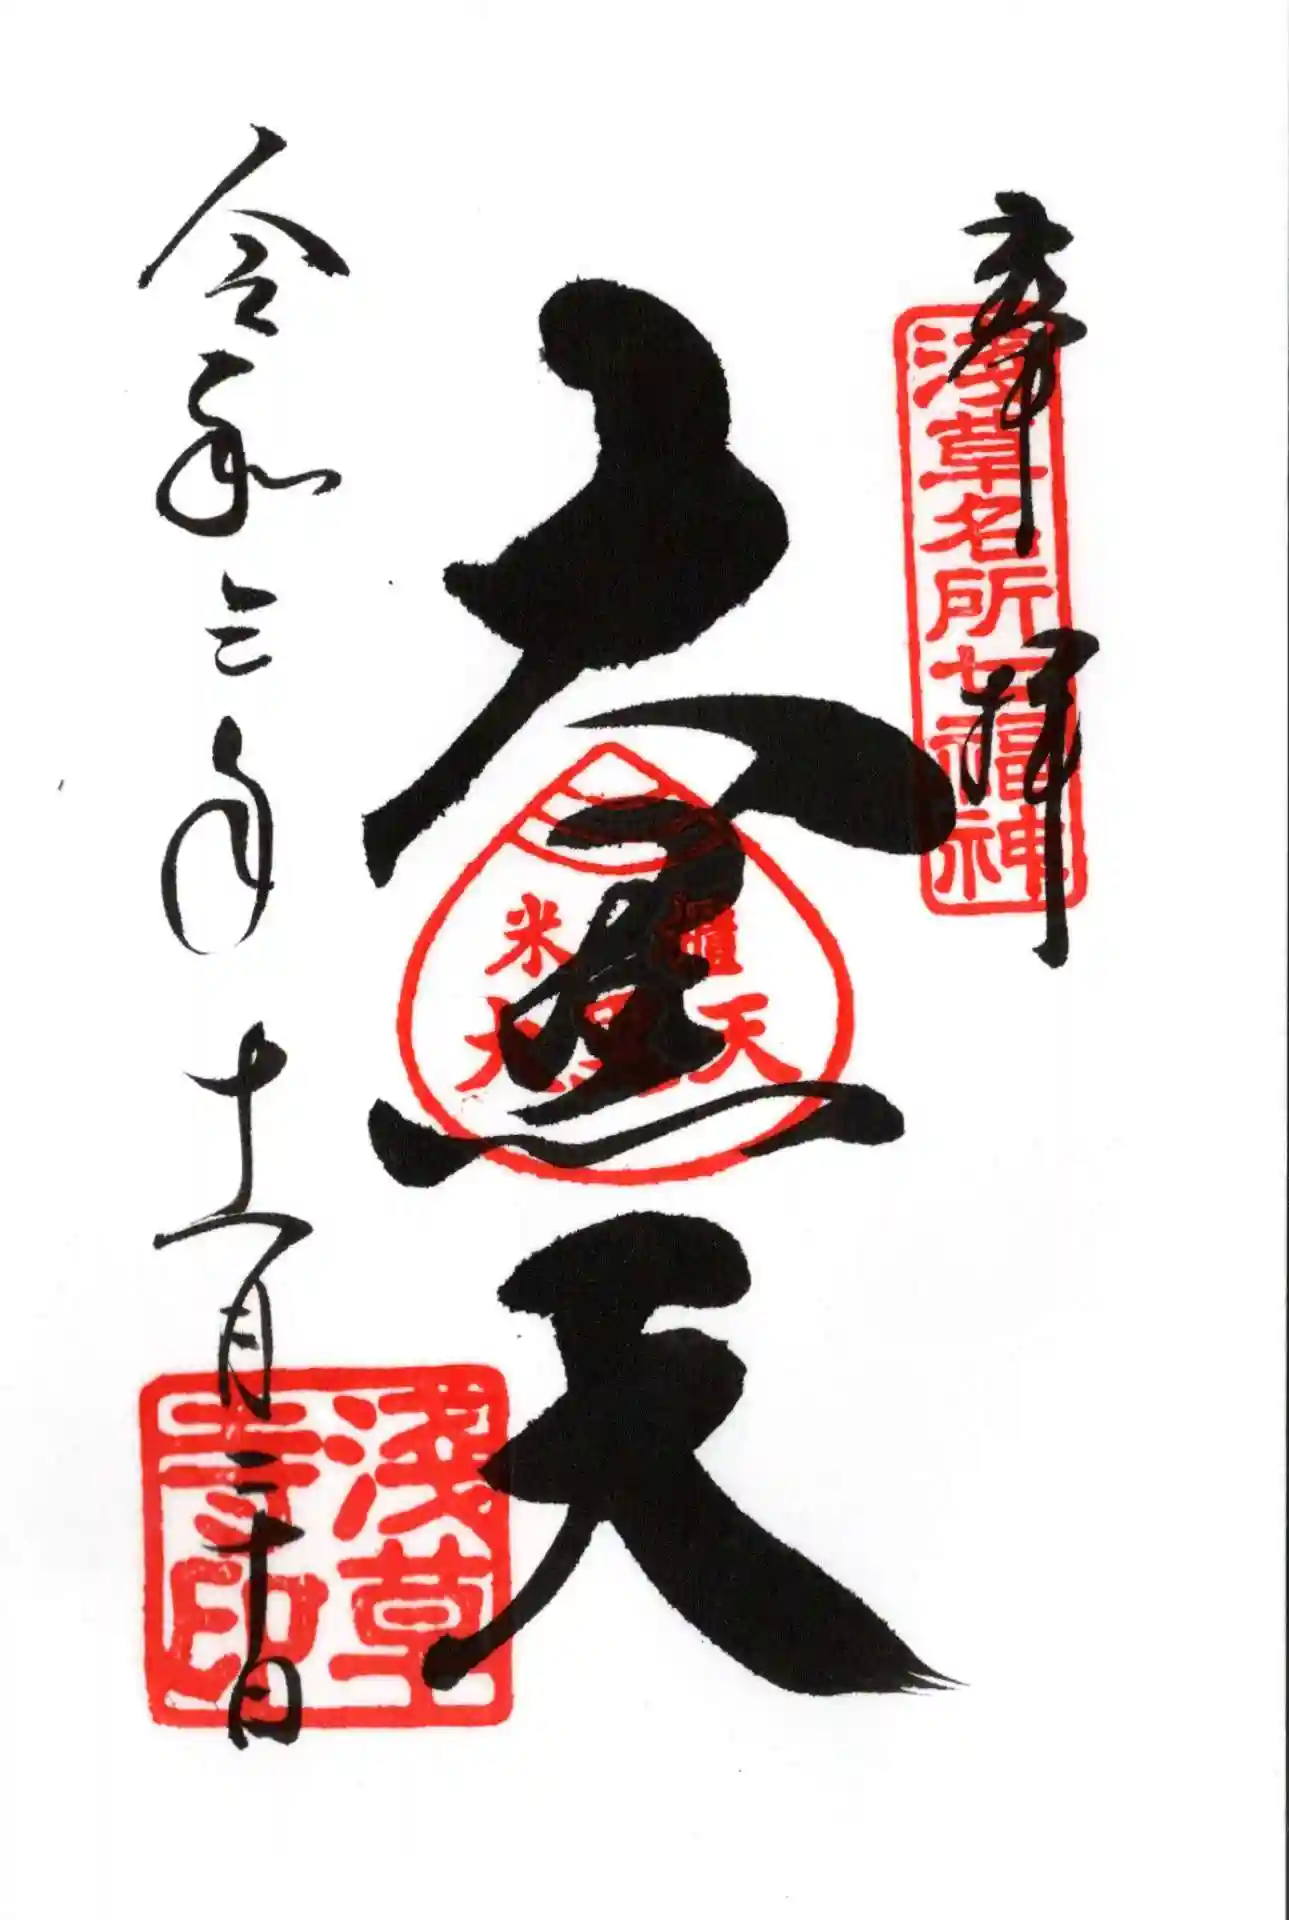 奉拝
浅草名所七福神
大黒天
米櫃
大黒天
令和三年十一月二十日
浅草
寺印